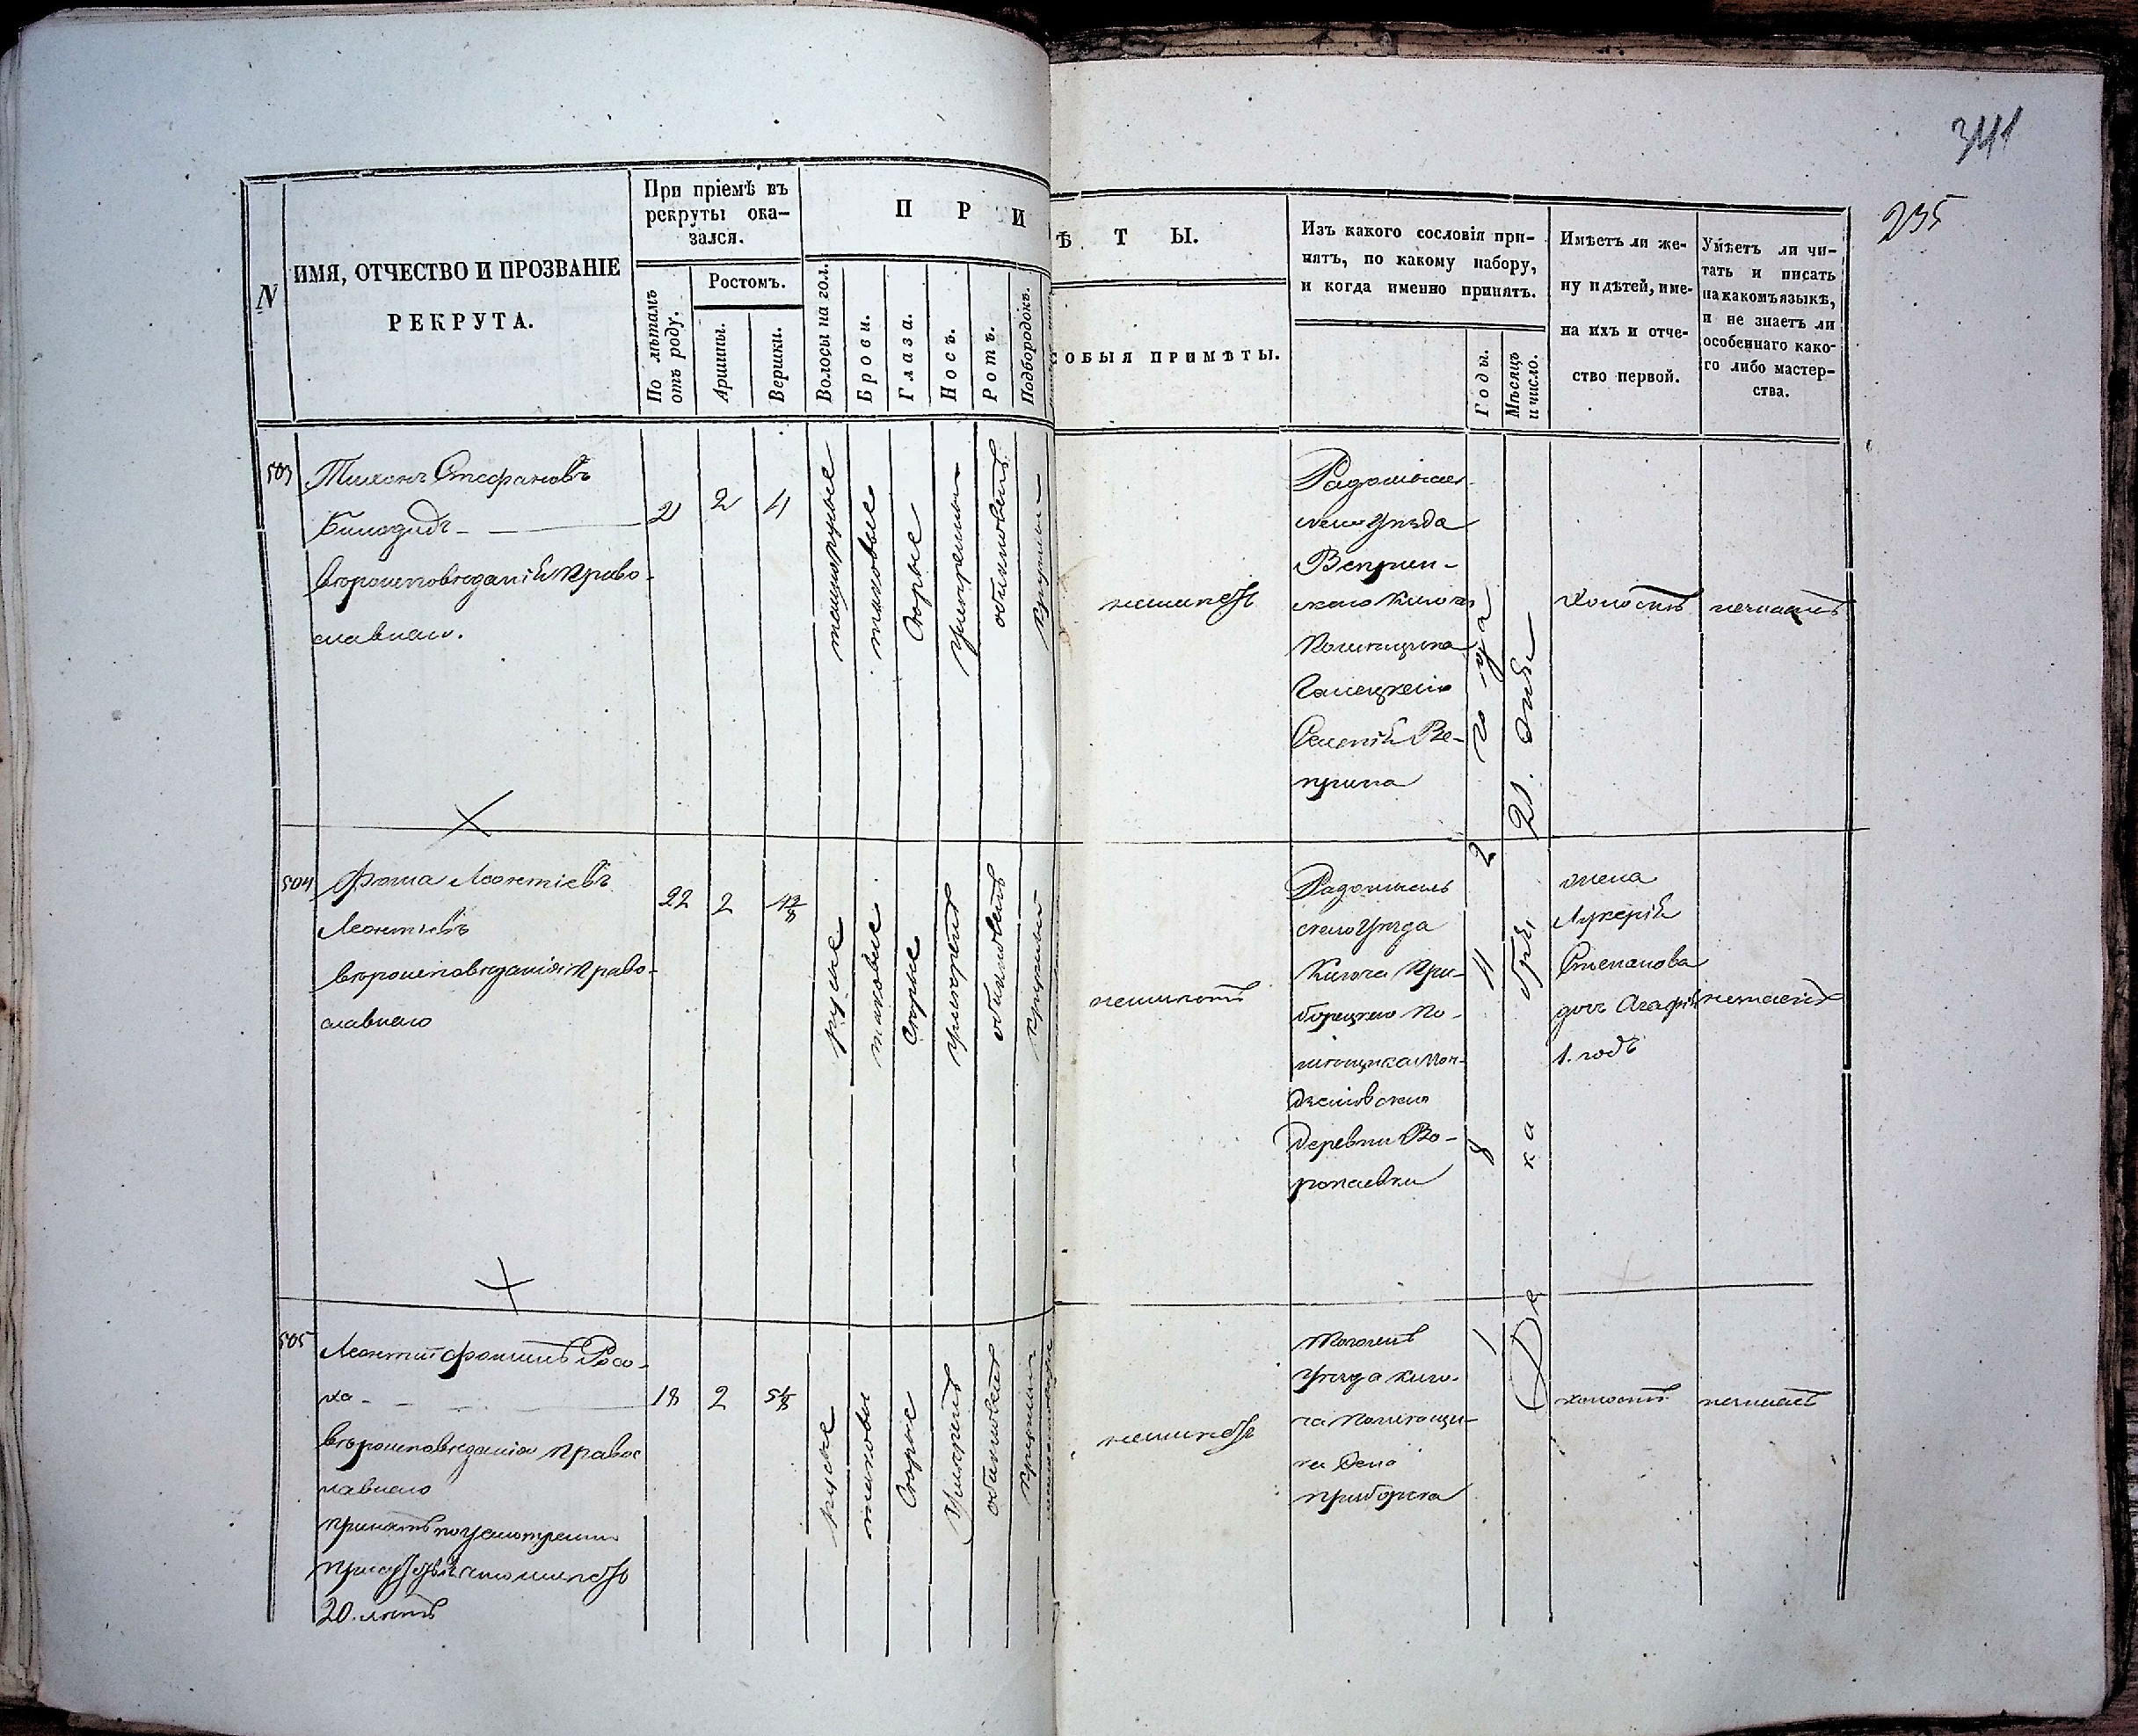 341
235
N
ИМЯ, ОТЧЕСТВО И ПРОЗВАНІЕ
РЕКРУТА.
При пріемѣ въ
рекруты ока-
зался.
По лѣтамъ
отъ роду.
Ростомъ.
Аршины.
Вершки.
П Р И
Волосы на гол.
Брови.
Глаза.
Носъ.
Ротъ.
Подбородокъ.
Ѣ Т Ы.
ОБЫЯ ПРИМѢТЫ.
Изъ какого сословія при-
нятъ, по какому набору,
и когда именно принятъ.
Годы.
Мѣсяцъ
и число.
Имѣетъ ли же-
ну и дѣтей, име-
на ихъ и отче-
ство первой.
Умѣетъ ли чи-
тать и писать
на какомъ языкѣ,
и не знаетъ ли
особеннаго како-
го либо мастер-
ства.
503
Тихонъ Стефановъ
вѣроисповѣданія Право-
славнаго.
21
2
4
темнорусые
таковые
Сѣрые
умѣренный
обыкновенъ
круглый
неимѣетъ
Радомысль-
скаго Уѣзда
Веприн-
скаго Ключа
Помѣщика
Галецкаго
Селенія Ве-
прина
холостъ
незнаетъ
504
Фома Леонтіевъ
Леонтіевъ
вѣроисповѣданія Право-
славнаго
22
2
4 2/8
русые
таковые
Сѣрые
умѣренъ
обыкновенъ
круглый
неимѣетъ
Радомысль
скаго Уѣзда
Ключа При-
борецкаго По-
мѣщика
деревни Во-
ропаевки
жена
Лукерія
Степанова
дочь Агафія
1. годъ
незнаетъ
505
Леонтій Фоминъ Росо-
ха
вѣроисповѣданія Правос
лавнаго
принятъ по усмотрѣнію
20. лѣтъ
18
2
5 4/8
русые
таковые
Сѣрые
Умѣренъ
обыкновенъ
круглый
неимѣетъ
Тогожъ
Уѣзда Клю-
ча Помѣщи-
ка Села
Приборска
холостъ
незнаетъ